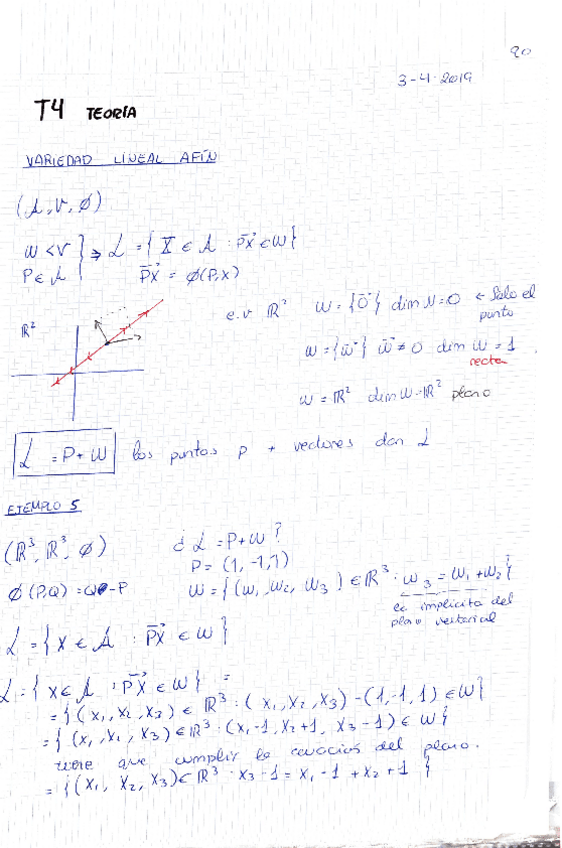 90
3-4-2019
T4 TEORÍA
VARIEDAD LINEAL AFÍN
(A, V, ϕ)
W < V } ⇒ L = { X ∈ A : PX⃗ ∈ W }
P ∈ A PX⃗ = ϕ(P,X)
ℝ²
e.v ℝ² W = {0⃗} dim W=0 ← Sólo el
punto
W = {w⃗} w⃗ ≠ 0 dim W = 1
recta
W = ℝ² dim W=ℝ² plano
L = P + W los puntos p + vectores dan L
EJEMPLO 5
(ℝ³, ℝ³, ϕ) ¿ L = P+W ?
P = (1, -1, 1)
ϕ(P,Q) = Q-P W = {(w₁, w₂, w₃) ∈ ℝ³ : w₃ = w₁ + w₂}
ec implícita del
plano vectorial
L = { X ∈ A : PX⃗ ∈ W }
L = { X ∈ A : PX⃗ ∈ W } =
= {(x₁, x₂, x₃) ∈ ℝ³ : (x₁, x₂, x₃) - (1, -1, 1) ∈ W}
= {(x₁, x₂, x₃) ∈ ℝ³ : (x₁-1, x₂+1, x₃-1) ∈ W}
tiene que cumplir la ecuación del plano.
= {(x₁, x₂, x₃) ∈ ℝ³ : x₃-1 = x₁-1 + x₂+1 }